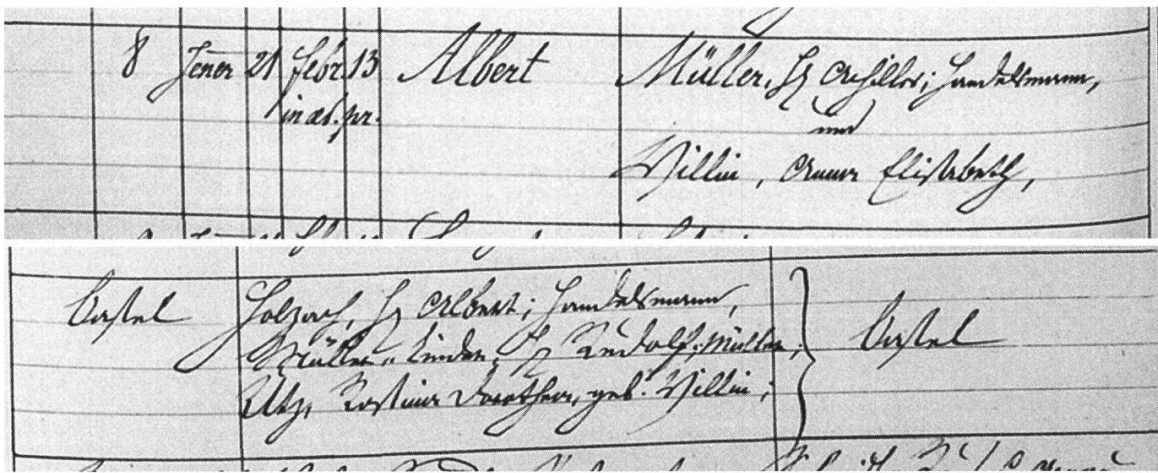 8 Jener 21 Febr. 13 Albert Müller, Hr Achilles; Handelsmann,
in aed. pr. und
Villin, Anna Elisabeth,
Basel Holzach, Hr Albert; Handelsmann,
Müller u Linder, Hr Rudolf; Müller; Basel
Utz, Rosina Dorothea, geb. Villin;